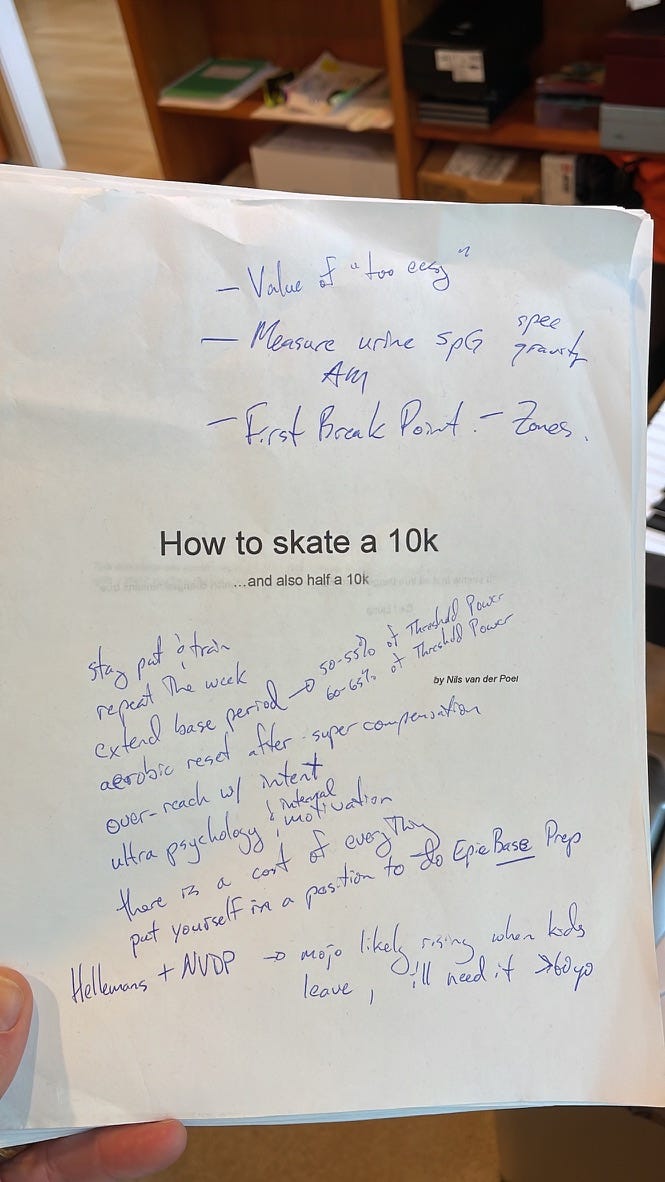 — Value of "too easy"
— Measure urine SpG spec gravity
AM
— First Break Point. — Zones.
How to skate a 10k
...and also half a 10k
by Nils van der Poel
stay put & train
repeat the week
extend base period → 50-55% of Threshold Power
60-65% of Threshold Power
aerobic reset after super compensation
over-reach w/ intent
ultra psychology & internal motivation
there is a cost of everything
put yourself in a position to do Epic Base Prep
Hellemans + NVDP → mojo likely rising when kids
leave, i'll need it >60yo